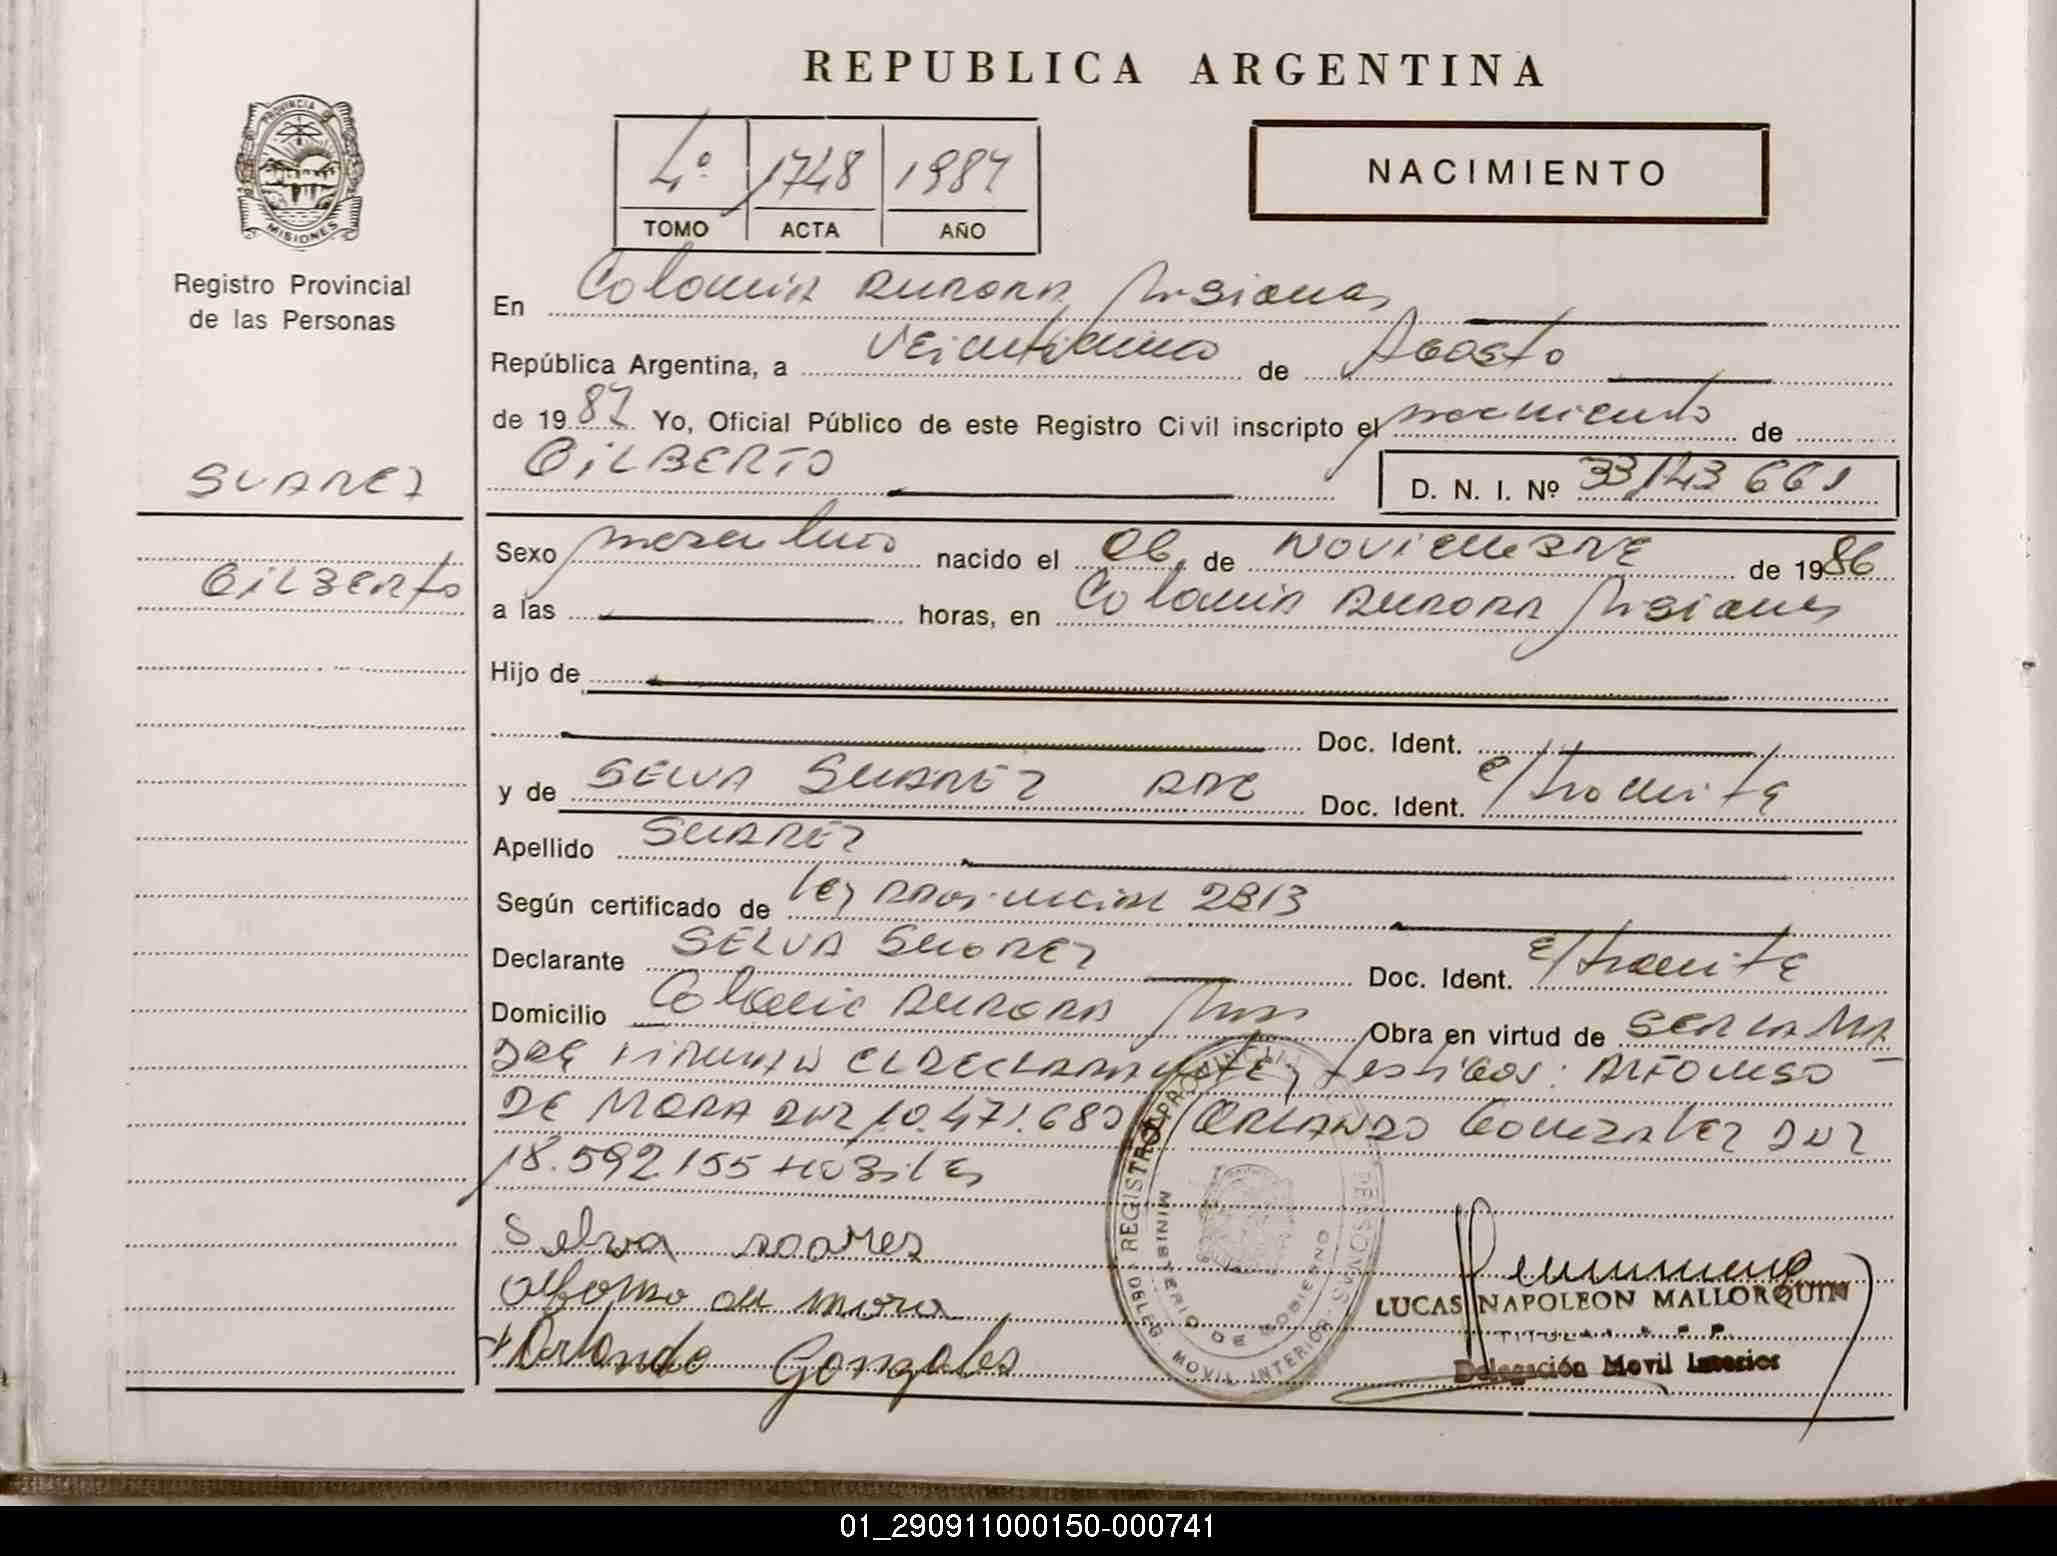 REPUBLICA ARGENTINA
PROVINCIA
MISIONES
Registro Provincial
de las Personas
4º 1748 1987
TOMO ACTA AÑO
NACIMIENTO
En Colonia Aurora Misiones
República Argentina, a Veintiuno de Agosto
de 1987 Yo, Oficial Público de este Registro Civil inscripto el nacimiento de
GILBERTO
D. N. I. Nº 33143661
SUAREZ
GILBERTO
Sexo masculino nacido el 06 de NOVIEMBRE de 1986
a las horas, en Colonia Aurora Misiones
Hijo de
Doc. Ident.
y de SELVA SUAREZ ARG Doc. Ident. e/tramite
Apellido SUAREZ
Según certificado de ley provincial 2813
Declarante SELVA SUAREZ Doc. Ident. e/tramite
Domicilio Colonia Aurora Mnes Obra en virtud de SER LA MA
DRE firman el declarante y testigos: Alfonso
DE MORA DNI 10.471.680 ORLANDO Gonzalez DNI
18.592.155 Habiles
Selva soares
Alfonso de mora
Orlando Gonzales
REGISTRO PROVINCIAL PERSONAS
MINISTERIO DE GOBIERNO
DELEG. MOVIL INTERIOR
LUCAS NAPOLEON MALLORQUIN
TITULAR R. P. P.
Delegación Movil Interior
01_290911000150-000741